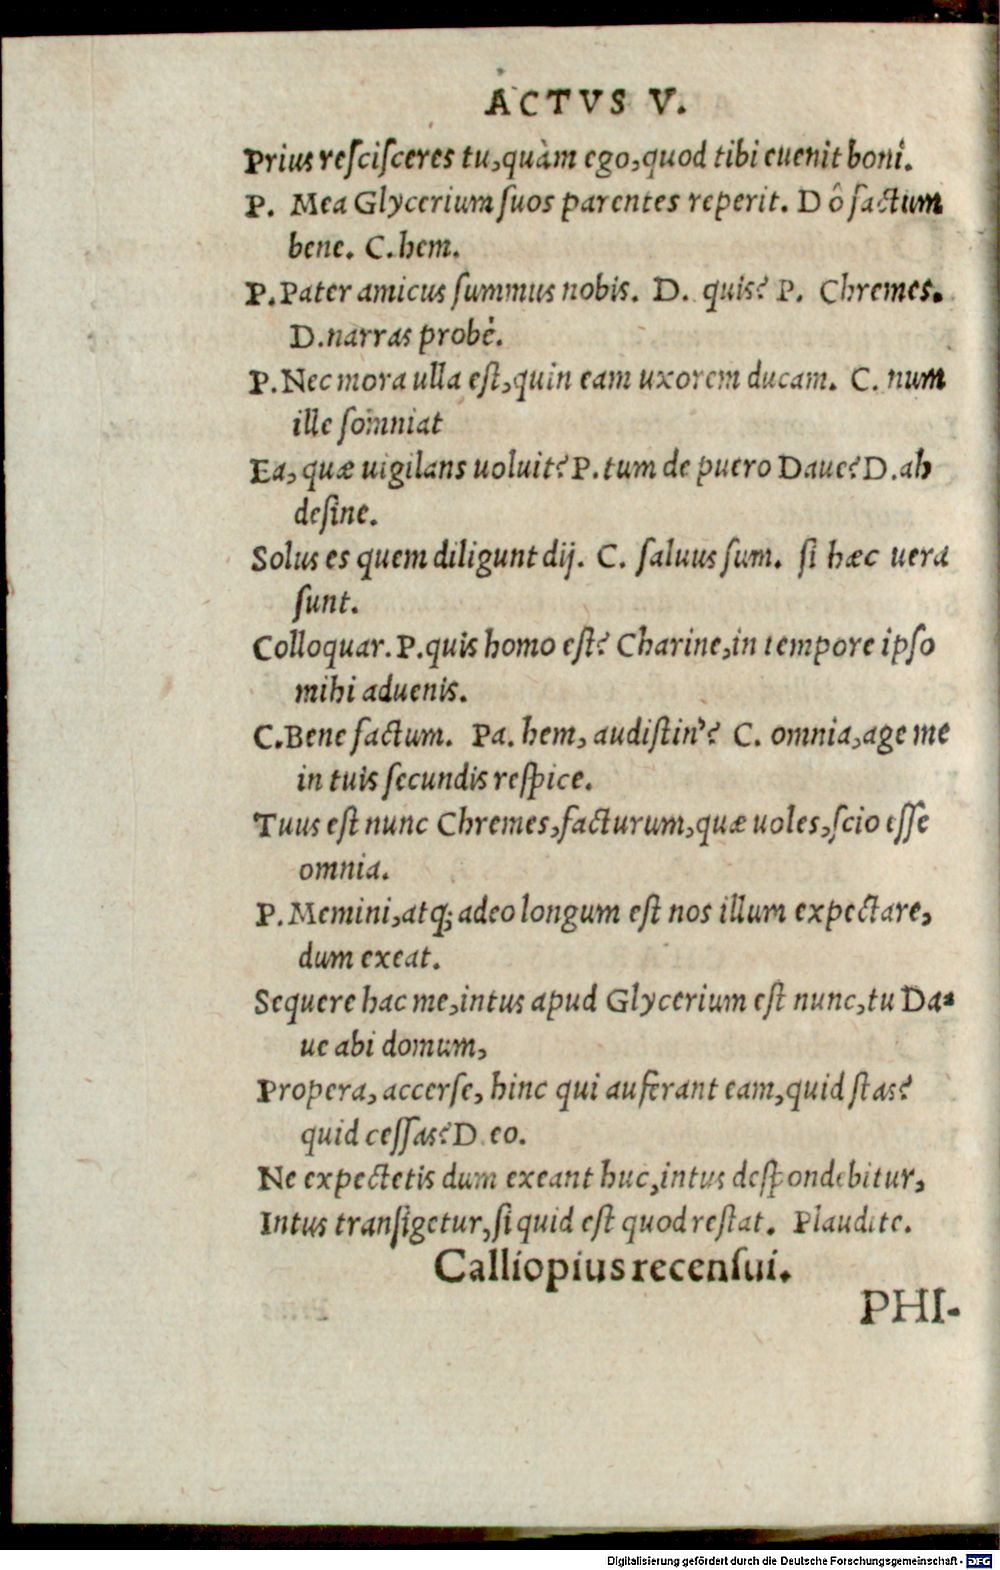 ACTVS V.
Prius reſciſceres tu, quàm ego, quod tibi euenit boni.
P. Mea Glycerium ſuos parentes reperit. D ô factum
bene. C. hem.
P. Pater amicus ſummus nobis. D. quis? P. Chremes.
D. narras probè.
P. Nec mora ulla eſt, quin eam uxorem ducam. C. num
ille ſomniat
Ea, quæ uigilans uoluit? P. tum de puero Daue? D. ah
deſine.
Solus es quem diligunt dij. C. ſaluus ſum. ſi hæc uera
ſunt.
Colloquar. P. quis homo eſt? Charine, in tempore ipſo
mihi aduenis.
C. Bene factum. Pa. hem, audiſtin'? C. omnia, age me
in tuis ſecundis reſpice.
Tuus eſt nunc Chremes, facturum, quæ uoles, ſcio eſſe
omnia.
P. Memini, atq; adeo longum eſt nos illum expectare,
dum exeat.
Sequere hac me, intus apud Glycerium eſt nunc, tu Da=
ue abi domum,
Propera, accerſe, hinc qui auferant eam, quid ſtas?
quid ceſſas? D. eo.
Ne expectetis dum exeant huc, intus deſpondebitur,
Intus tranſigetur, ſi quid eſt quod reſtat. Plaudite.
Calliopius recenſui.
PHI-
Digitalisierung gefördert durch die Deutsche Forschungsgemeinschaft - DFG